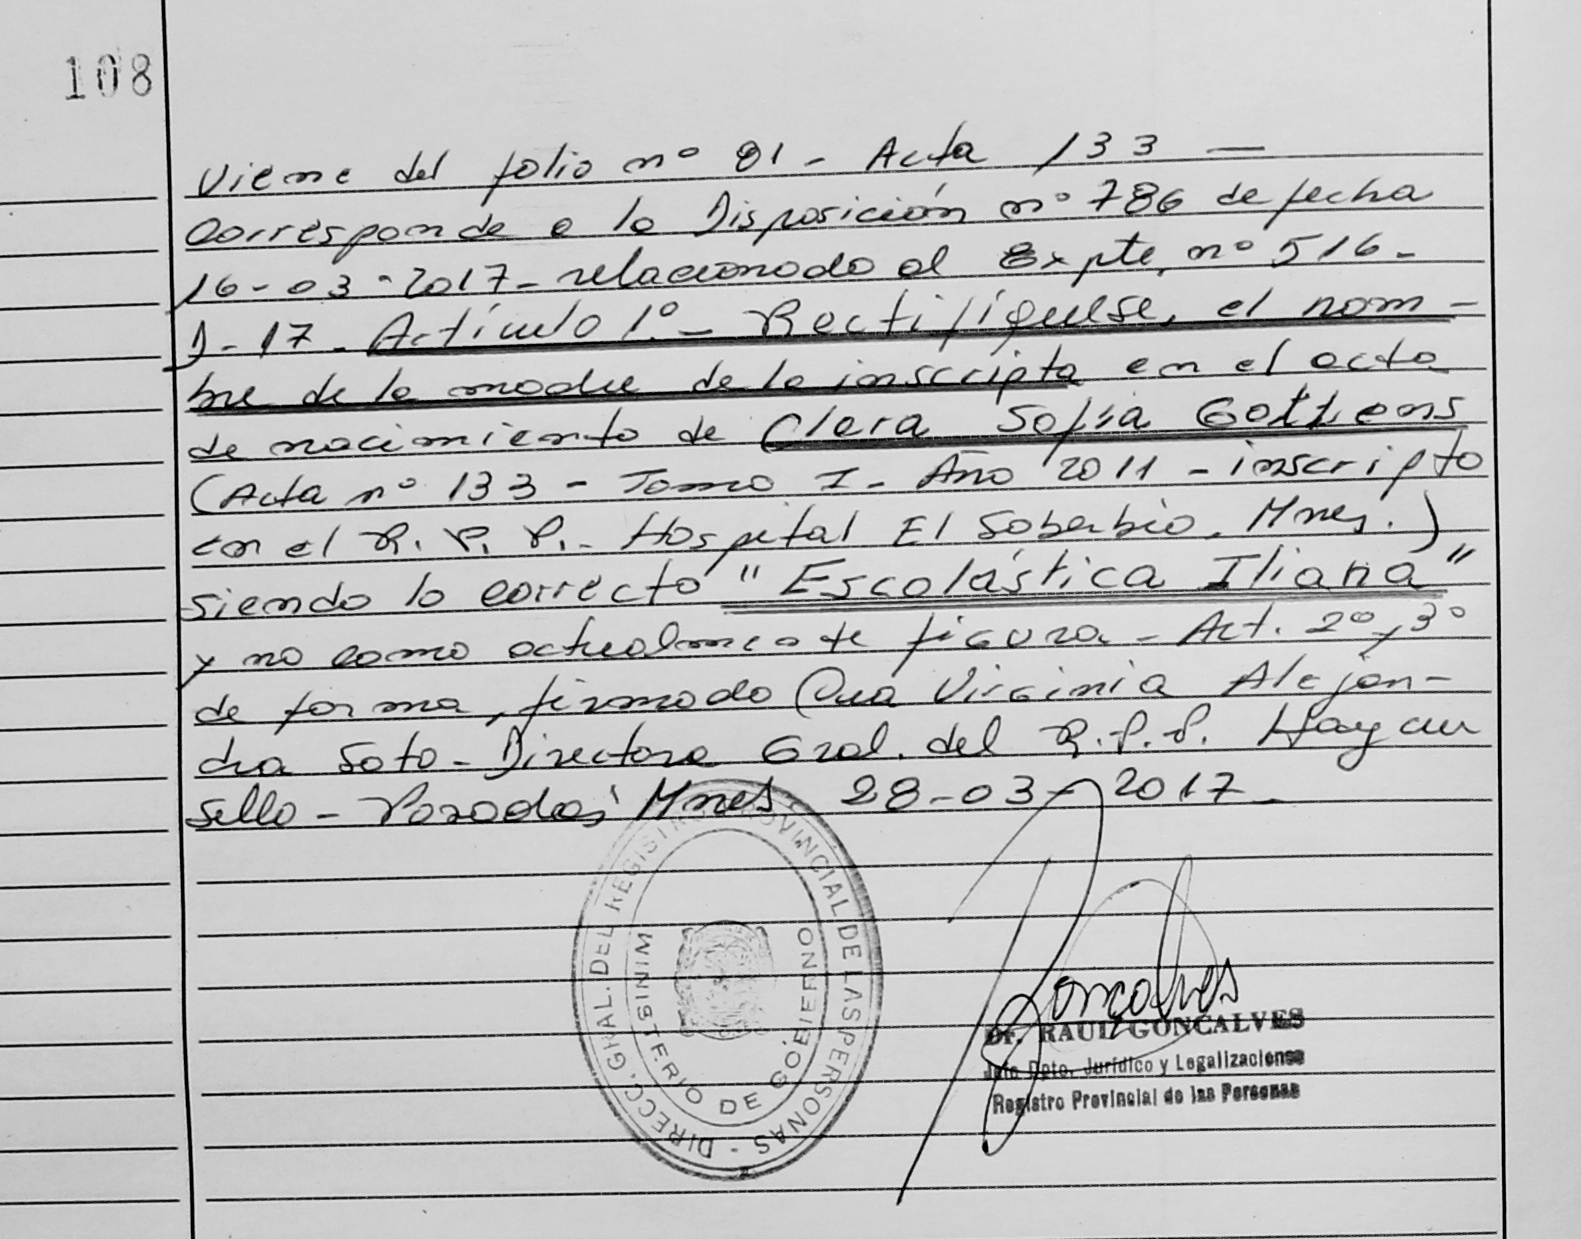 108
Viene del folio nº 81 - Acta 133 —
Corresponde a la Disposición nº 786 de fecha
16-03-2017- relacionado al Expte, nº 516-
D-17- Artículo 1º- Rectifíquese, el nom-
bre de la madre de la inscripta en el acta
de nacimiento de Clara Sofía
(Acta nº 133 - Tomo I- Año 2011 - inscripto
en el R. P. P. - Hospital El Soberbio. Mnes.)
siendo lo correcto "Escolástica Iliana"
y no como actualmente figura - Art. 2º y 3º
de forma, firmado Dra Virginia Alejan-
dra Soto - Directora Gral. del R.P.P. Hay un
sello - Posadas, Mnes 28-03-2017-
DIRECC. GRAL. DEL REGISTRO PROVINCIAL DE LAS PERSONAS -
MINISTERIO DE GOBIERNO
Goncalves
Dr. RAUL GONCALVES
Jefe Dpto. Jurídico y Legalizaciones
Registro Provincial de las Personas